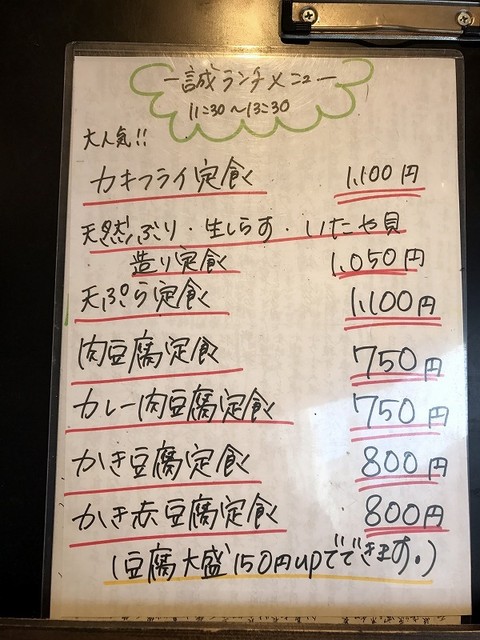 ー誠ランチメニューー
11:30〜13:30
大人気!!
カキフライ定食 1,100円
天然ぶり・生しらす・いたや貝
造り定食 1,050円
天ぷら定食 1,100円
肉豆腐定食 750円
カレー肉豆腐定食 750円
かき豆腐定食 800円
かき赤豆腐定食 800円
(豆腐大盛150円upでできます。)